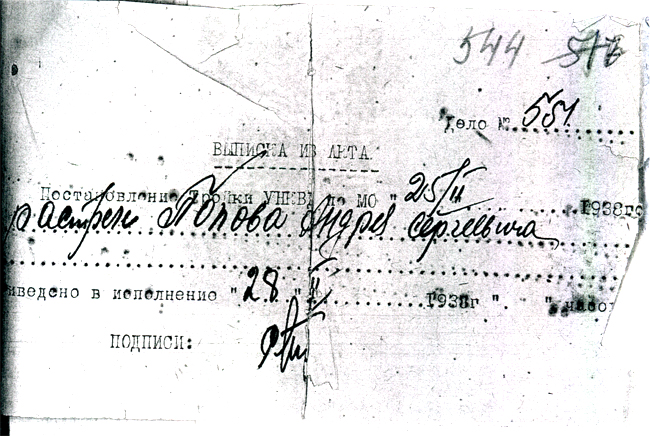 544 572
Дело № 551
ВЫПИСКА ИЗ АКТА
Постановление Тройки УНКВД по МО "25/II 1938го
расстреле Попова Андрея Сергеевича
иведено в исполнение "28"II 1938г " " часо
ПОДПИСИ: